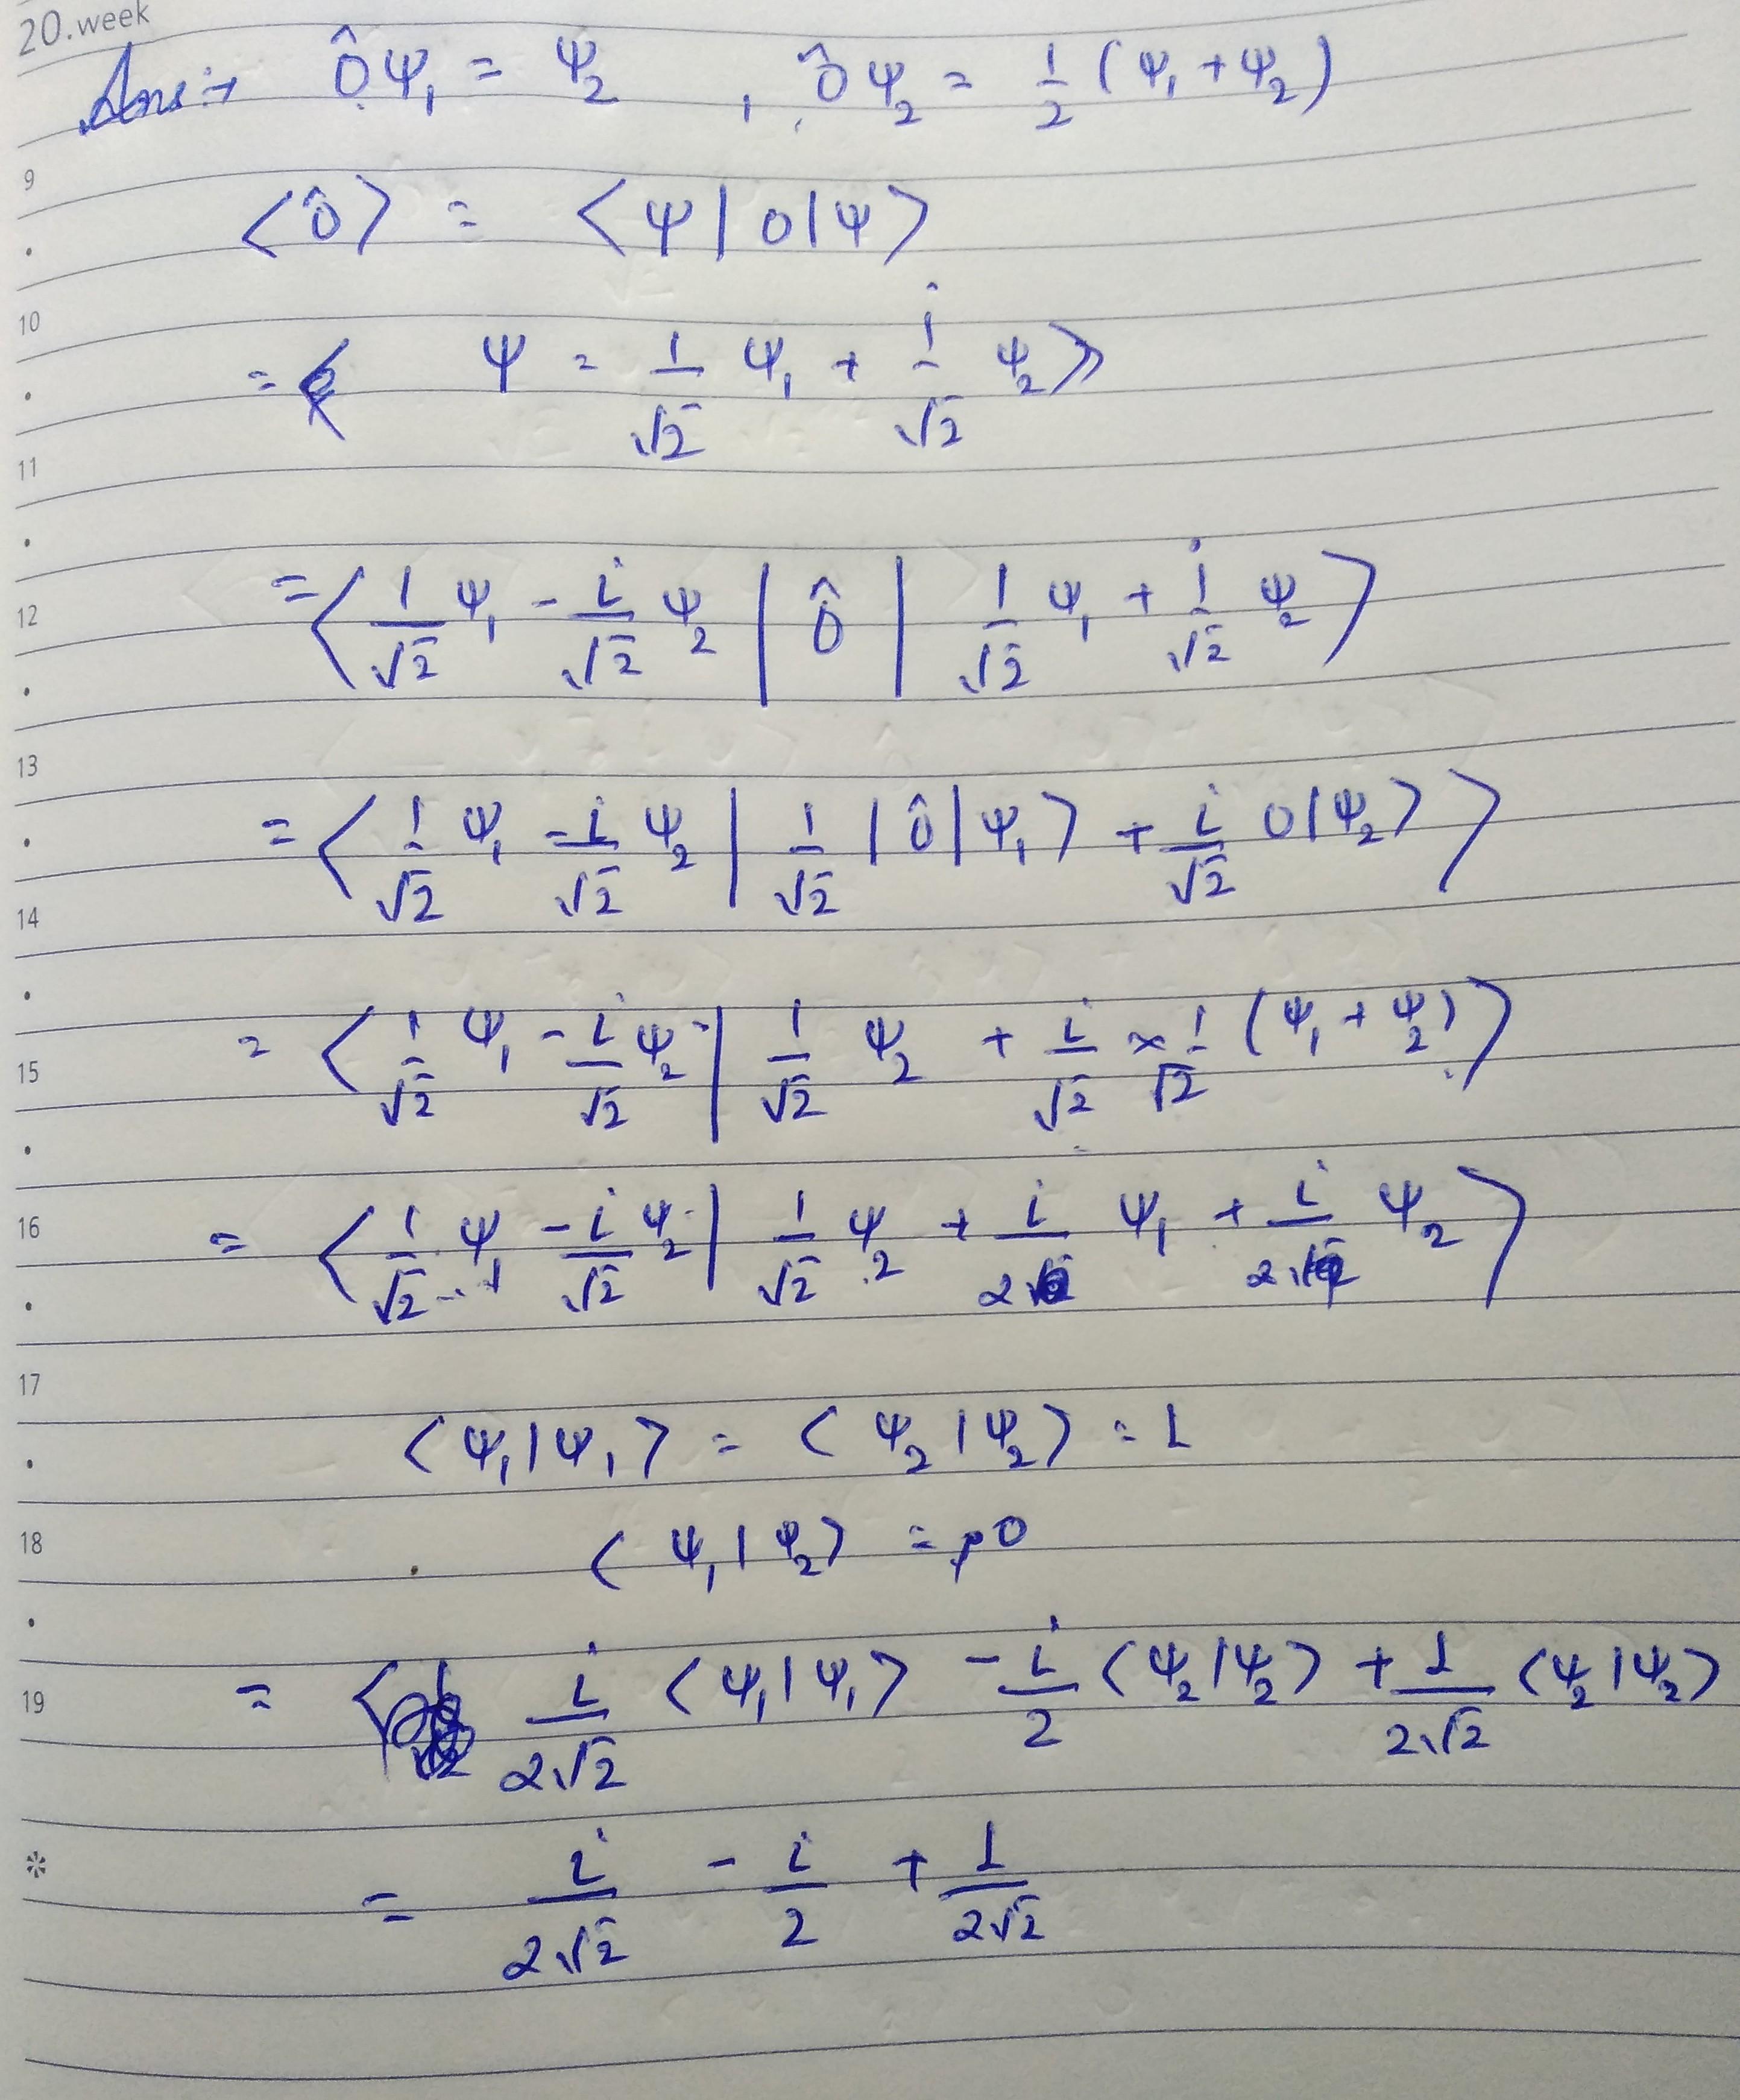 20.week
Ans:→ ÔΨ₁ = Ψ₂ , ÔΨ₂ = 1/2 (Ψ₁ + Ψ₂)
9
⟨Ô⟩ = ⟨Ψ|O|Ψ⟩
10
= Ψ = 1/√2 Ψ₁ + i/√2 Ψ₂⟩
11
12 = ⟨1/√2 Ψ₁ - i/√2 Ψ₂ | Ô | 1/√2 Ψ₁ + i/√2 Ψ₂⟩
13
= ⟨1/√2 Ψ₁ - i/√2 Ψ₂ | 1/√2 |Ô|Ψ₁⟩ + i/√2 O|Ψ₂⟩⟩
14
15 = ⟨1/√2 Ψ₁ - i/√2 Ψ₂ | 1/√2 Ψ₂ + i/√2 × 1/√2 (Ψ₁ + Ψ₂)⟩
16 = ⟨1/√2 Ψ₁ - i/√2 Ψ₂ | 1/√2 Ψ₂ + i/2 Ψ₁ + i/2 Ψ₂⟩
17
⟨Ψ₁|Ψ₁⟩ = ⟨Ψ₂|Ψ₂⟩ = 1
18 ⟨Ψ₁|Ψ₂⟩ = 0
19 = ⟨ i/2√2 ⟨Ψ₁|Ψ₁⟩ - i/2 ⟨Ψ₂|Ψ₂⟩ + 1/2√2 ⟨Ψ₂|Ψ₂⟩
= i/2√2 - i/2 + 1/2√2